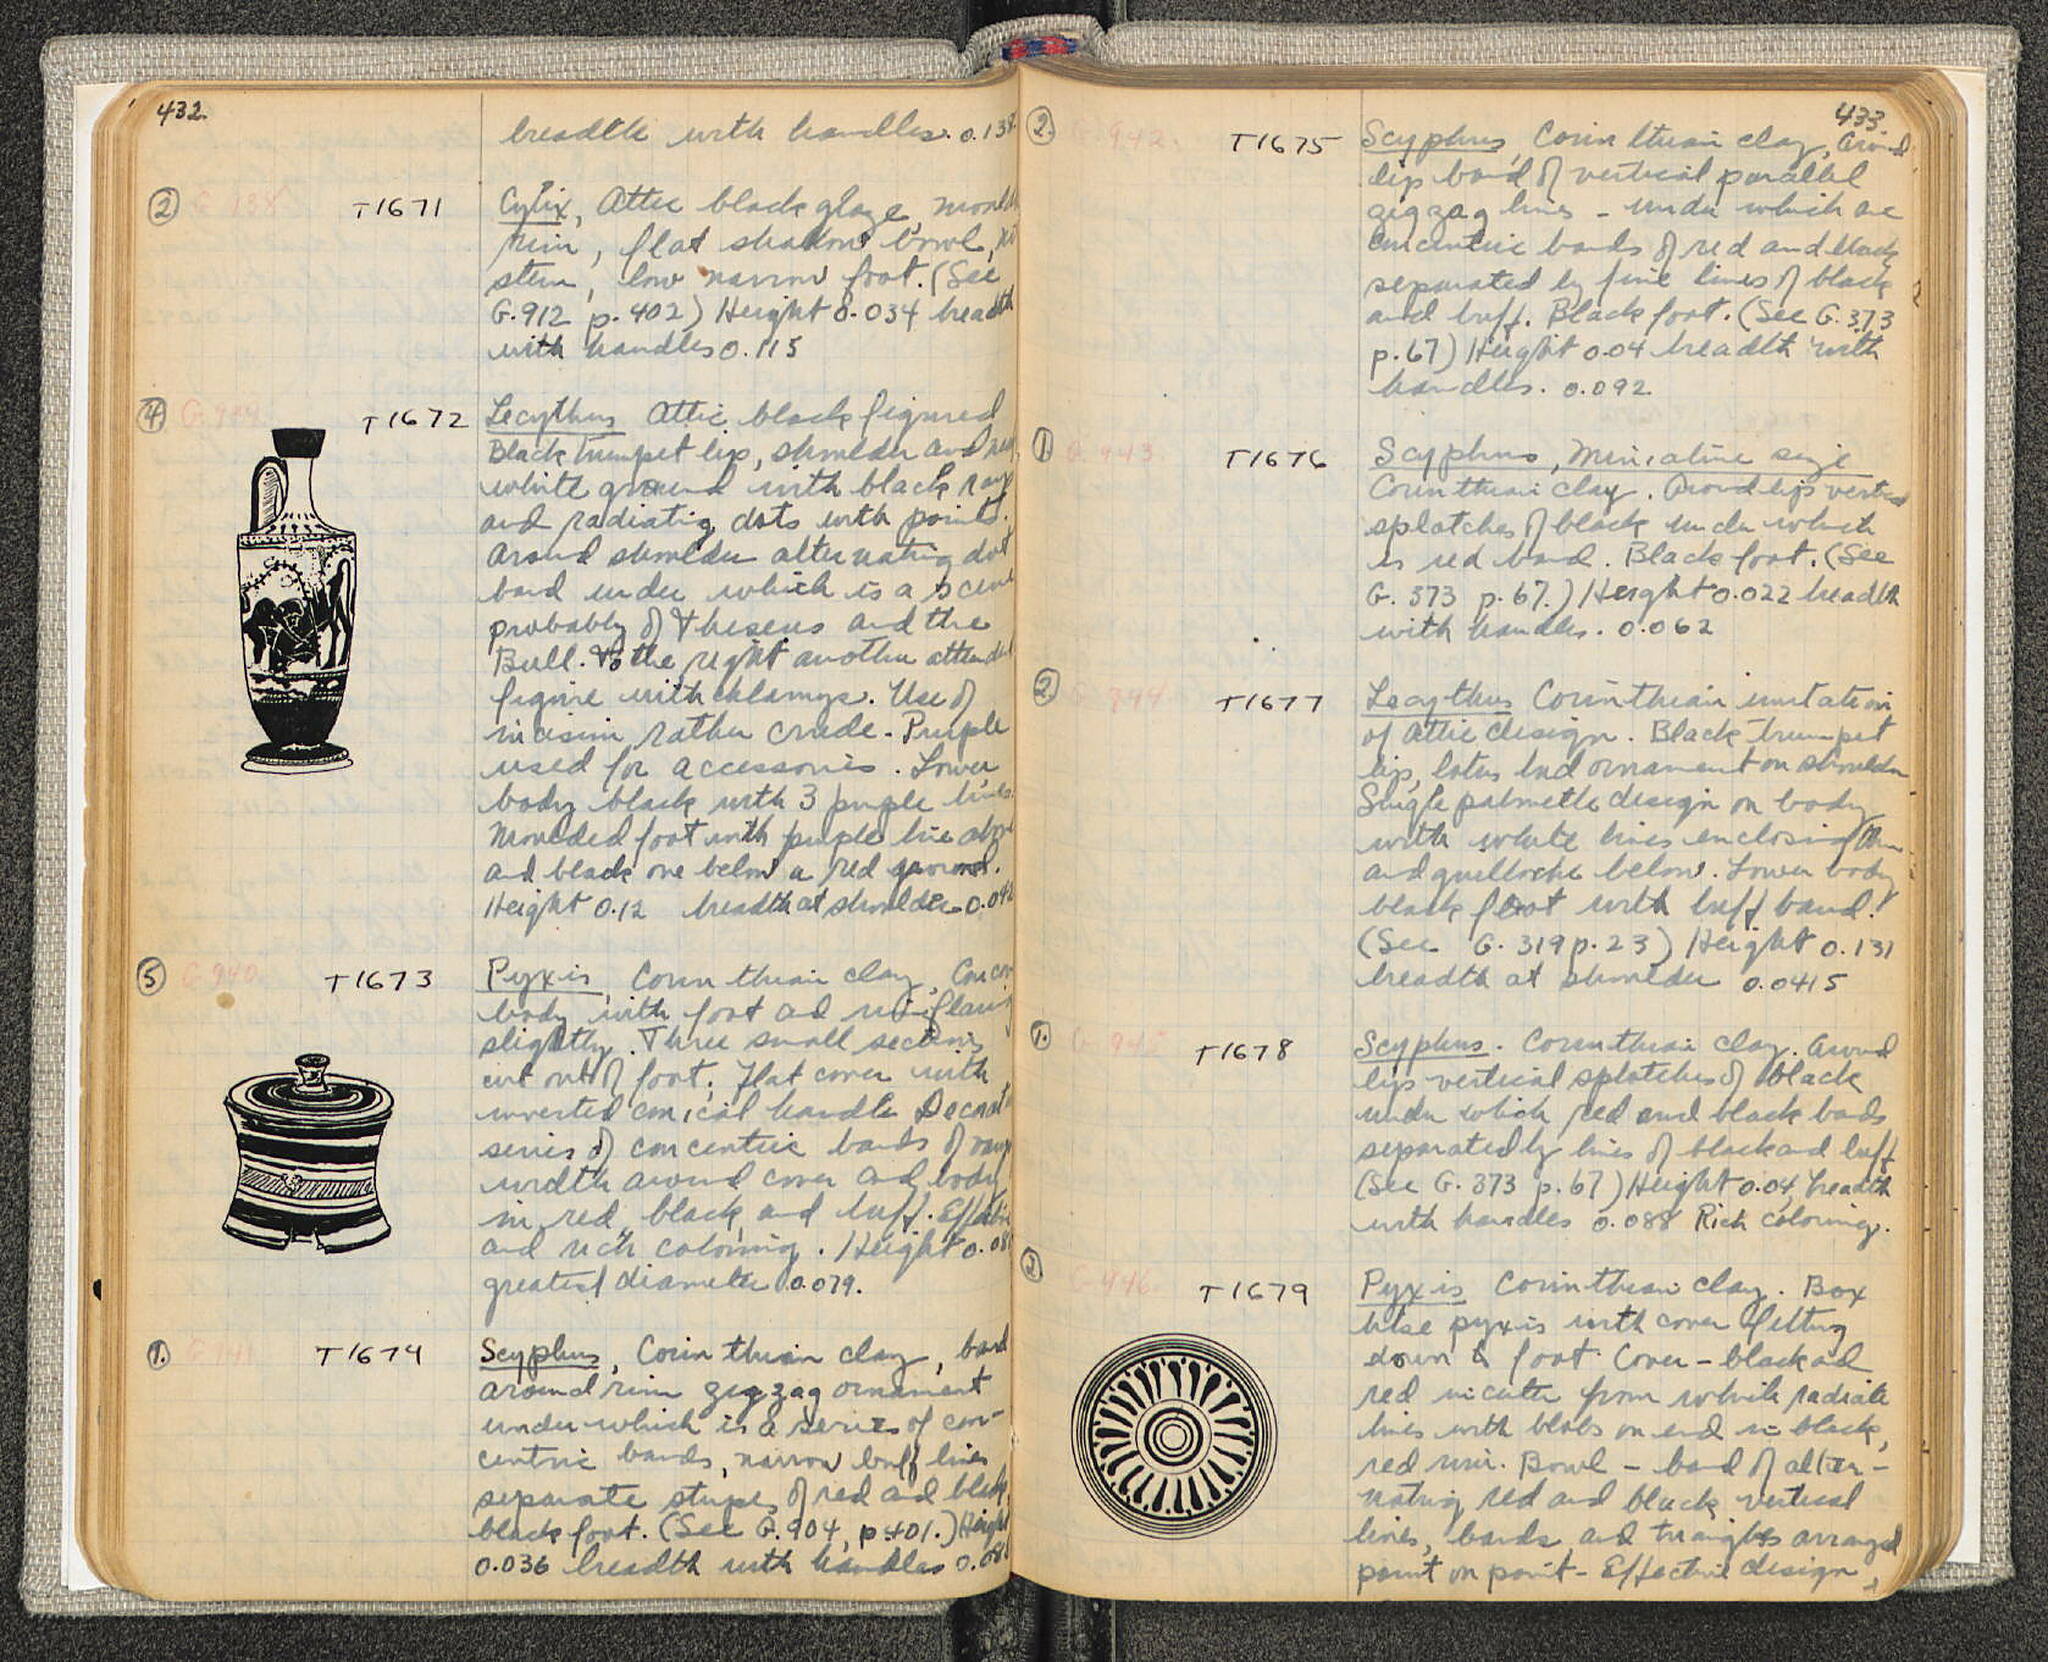 432.
breadth with handles. 0.138
② G 138 T1671 Cylix, Attic black glaze, mould
rim, flat shallow bowl, no
stem, low narrow foot. (See
G.912 p. 402) Height 0.034 breadth
with handles 0.115
④ G.939. T1672 Lecythus Attic black figured
Black trumpet lip, shoulder and neck
white ground with black rays
and radiating dots with points.
Around shoulder alternating dot
band under which is a scene
probably of Theseus and the
Bull. To the right another attendant
figure with chlamys. Use of
incision rather crude. Purple
used for accessories. Lower
body black with 3 purple lines.
Moulded foot with purple line above
and black one below a red ground.
Height 0.12 breadth at shoulder 0.042
⑤ G 940. T1673 Pyxis, Corinthian clay, Concave
body with foot and rim flaring
slightly. Three small sections
cut out of foot. Flat cover with
inverted conical handle Decorat
series of concentric bands of vary
width around cover and body
in red, black and buff. Effective
and rich coloring. Height 0.08
greatest diameter 0.079.
①. G 941 T1674 Scyphus, Corinthian clay, band
around rim zigzag ornament
under which is a series of con-
centric bands, narrow buff lines
separate stripes of red and black,
black foot. (See G.904, p.401.) Height
0.036 breadth with handles 0.08
433.
②. G.942. T1675 Scyphus, Corinthian clay, Around
lip band of vertical parallel
zigzag lines - under which are
concentric bands of red and black
separated by fine lines of black
and buff. Black foot. (See G.373
p.67) Height 0.04 breadth with
handles. 0.092
①. G.943. T1676 Scyphus, Miniature size
Corinthian clay. Around lip vertical
splotches of black under which
is red band. Black foot. (See
G. 373 p. 67.) Height 0.022 breadth
with handles. 0.062
②. G 944. T1677 Lecythus Corinthian imitation
of Attic design. Black trumpet
lip, lotus bud ornament on shoulder
Single palmette design on body
with white lines enclosing them
and guilloche below. Lower body
black foot with buff band.
(See G. 319 p. 23) Height 0.131
breadth at shoulder 0.0415
①. G. 945 T1678 Scyphus. Corinthian clay. Around
lip vertical splotches of black
under which red and black bands
separated by lines of black and buff
(See G. 373 p. 67) Height 0.04, breadth
with handles 0.088 Rich coloring.
②. G 946. T1679 Pyxis Corinthian clay. Box
like pyxis with cover fitting
down to foot. Cover - black and
red in center from which radiate
lines with blobs on end in black,
red rim. Bowl - band of alter-
nating red and black vertical
lines, bands and triangles arranged
point on point - Effective design,